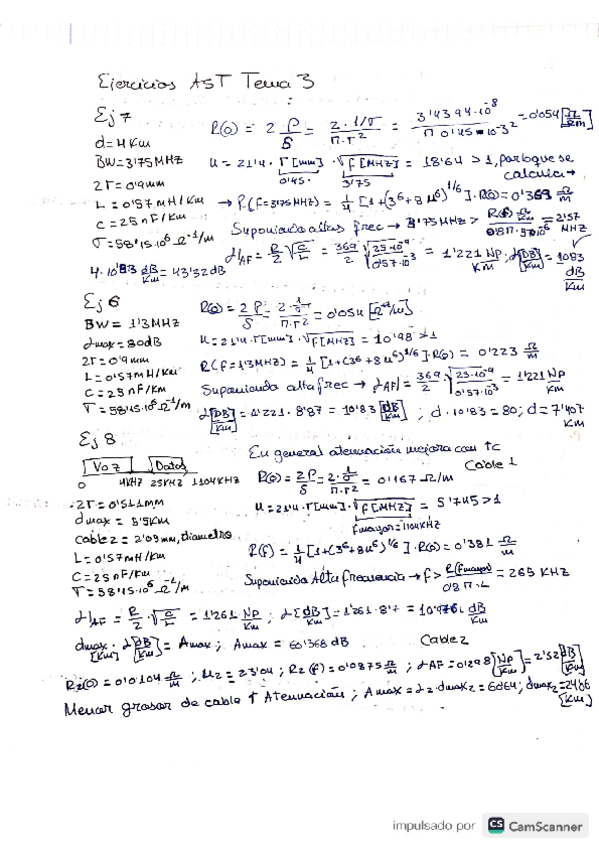 Ejercicios AST Tema 3
Ej 7
d=4Km
BW=3'75MHZ
2r=0'9mm
L=0'57mH/Km
C=25nF/Km
σ=58'15·10⁶ Ω⁻¹/m
4·10'83 dB/Km = 43'32dB
R(0) = 2 ρ/S = 2·1/σ / π·r² = 3'4394·10⁻⁸ / π 0'45 = 0'054
u=21'4·r[mm]·√f[MHz] = 18'64 >1, por lo que se calcula →
0'45· 3'75
→ R(f=3'75MHZ) = 1/4 [1+(3⁶+8u⁶)^1/6]·R(0) = 0'369 Ω/m
Suponiendo altas frec → 3'75MHZ > = 2'57 MHZ
α|AF = R/2 √C/L = 369/2 √25·10⁻⁹/0'57·10⁻³ = 1'221 Np/Km; α[dB/Km] = 10'83 dB/Km
Ej 6
BW = 1'3MHZ
αmax=80dB
2r=0'9mm
L=0'57mH/Km
C=25nF/Km
σ=58'15·10⁶ Ω⁻¹/m
R(0) = 2ρ/S = 2·1/σ / π·r² = 0'054
u=21'4·r[mm]·√f[MHz] = 10'98 >1
R(f=1'3MHZ) = 1/4 [1+(3⁶+8u⁶)^1/6]·R(0) = 0'223 Ω/m
Suponiendo alta frec → α|AF| = 369/2 √25·10⁻⁹/0'57·10⁻³ = 1'221 Np/Km
α[dB/Km] = 1'221·8'87 = 10'83 [dB/Km]; d·10'83=80; d=7'407 Km
Ej 8
En general atenuación mejora con ↑c
Voz Datos
0 4KHZ 25KHZ 1104KHZ
Cable 1
2r=0'511mm
dmax = 5'5Km
cable2 = 2'09mm, diametro
L=0'57mH/Km
C=25nF/Km
σ=58'15·10⁶ Ω⁻¹/m
R(0) = 2ρ/S = 2·1/σ / π·r² = 0'167 Ω/m
u=21'4·r[mm]·√f[MHz] = 5'745 >1
fmayor=1104KHZ
R(f) = 1/4 [1+(3⁶+8u⁶)^1/6]·R(0) = 0'381 Ω/m
Suponiendo Alta frecuencia → f> R(fmayor)/0'8π·L = 265 KHZ
α|AF = R/2·√C/L = 1'261 Np/Km; α[dB/Km] = 1'261·8'7 = 10'976 dB/Km
dmax[Km]·α[dB/Km] = Amax; Amax = 60'368 dB
Cable2
R₂(0) = 0'0104 Ω/m; u₂=23'04; R₂(f) = 0'0875 Ω/m; αAF=0'298[Np/Km] = 2'52[dB/Km]
Menor grosor de cable ↑ Atenuación; Amax = α₂·dmax₂ = ; dmax₂ = [Km]
impulsado por CS CamScanner